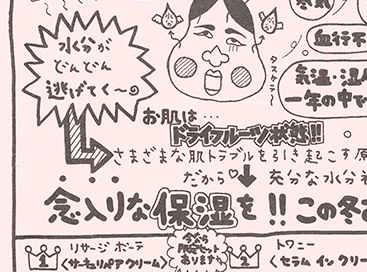 水分が
どんどん
逃げてく〜
タスケテ〜
血行不
気温・湿
一年の中で
お肌は…
ドライフルーツ状態!!
さまざまな肌トラブルを引き起こす原
だから♡
充分な水分
念入りな保湿を!!この冬
今なら
限定セット
あります
1
リサージ ボーテ
〈サーキュリペアクリーム〉
2
トワニー
〈セラム イン クリー